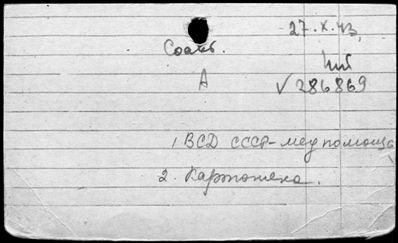 27.X.43.
А
√ 286869
1 ВСД СССР - мед помощь
2. Картотека.